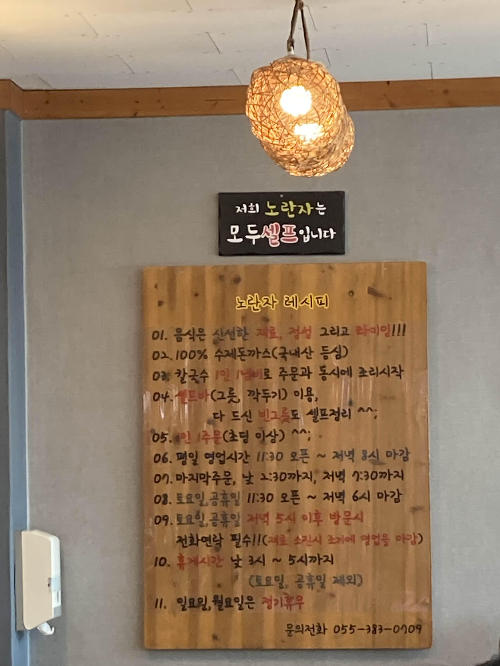 저희 노란자는
모두셀프입니다
노란자 레시피
01. 음식은 신선한 재료, 정성 그리고 타이밍!!!
02. 100% 수제돈까스(국내산 등심)
03. 칼국수 1인 1냄비로 주문과 동시에 조리시작
04. 셀프바(그릇, 깍두기) 이용,
다 드신 빈그릇도 셀프정리 ^^;
05. 1인 1주문(초딩 이상) ^^;
06. 평일 영업시간 11:30 오픈 ~ 저녁 8시 마감
07. 마지막주문, 낮 2:30까지, 저녁 7:30까지
08. 토요일,공휴일 11:30 오픈 ~ 저녁 6시 마감
09. 토요일,공휴일 저녁 5시 이후 방문시
전화연락 필수!!(재료 소진시 조기에 영업을 마감)
10. 휴게시간 낮 3시 ~ 5시까지
(토요일, 공휴일 제외)
11. 일요일,월요일은 정기휴무
문의전화 055-383-0709